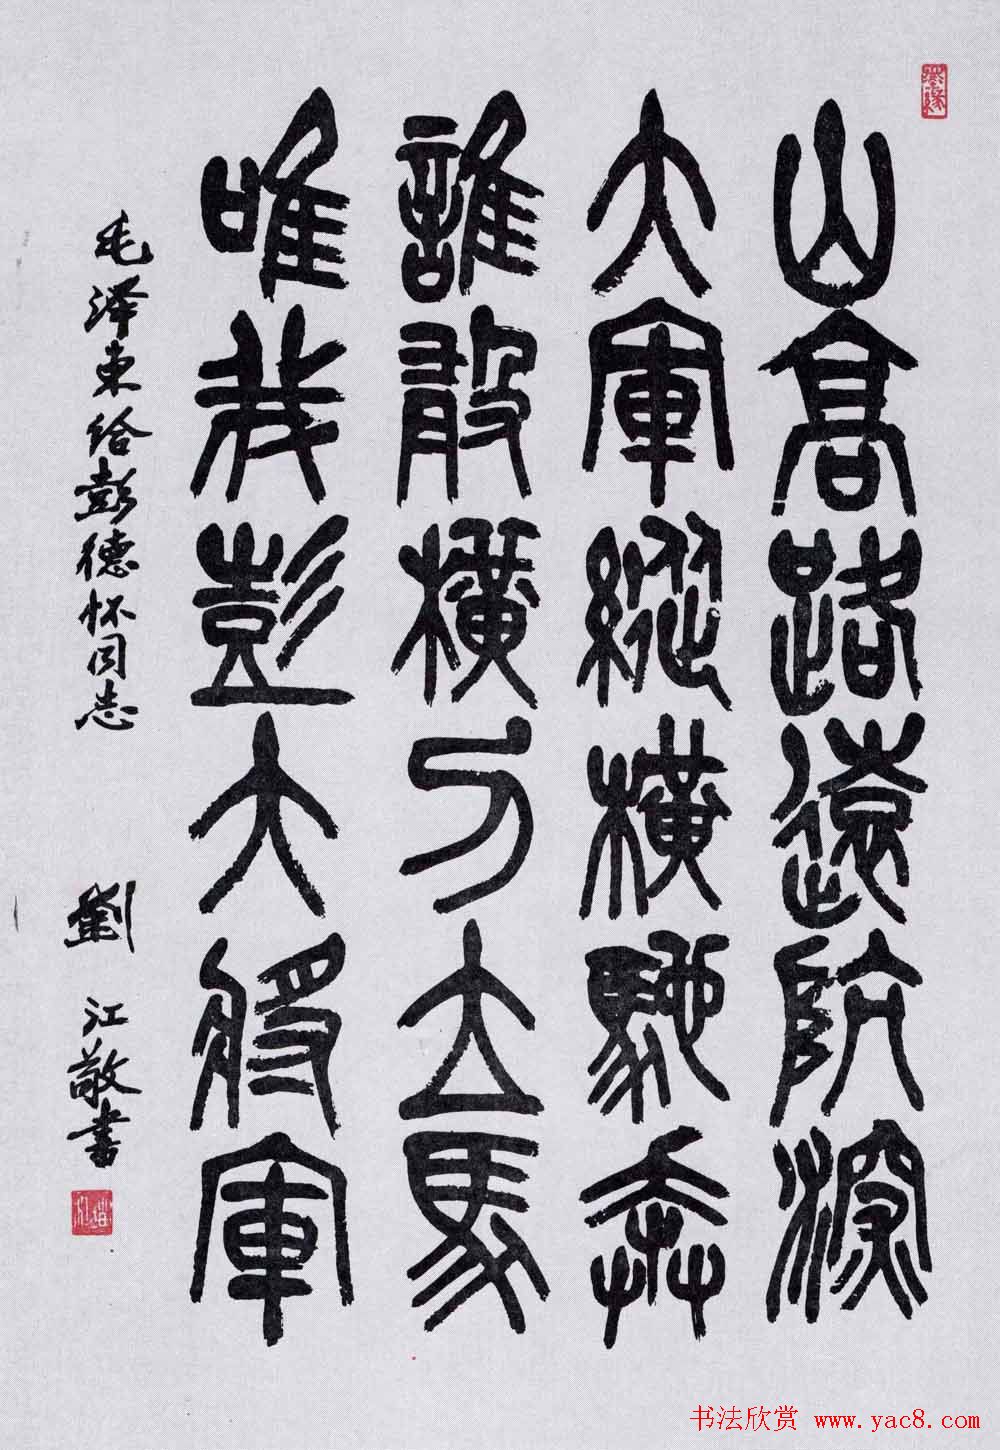 山高路遠阬深
大軍縱橫馳奔
誰敢橫刀立馬
唯我彭大將軍
毛泽東给彭德怀同志
劉江敬書
书法欣赏 www.yac8.com